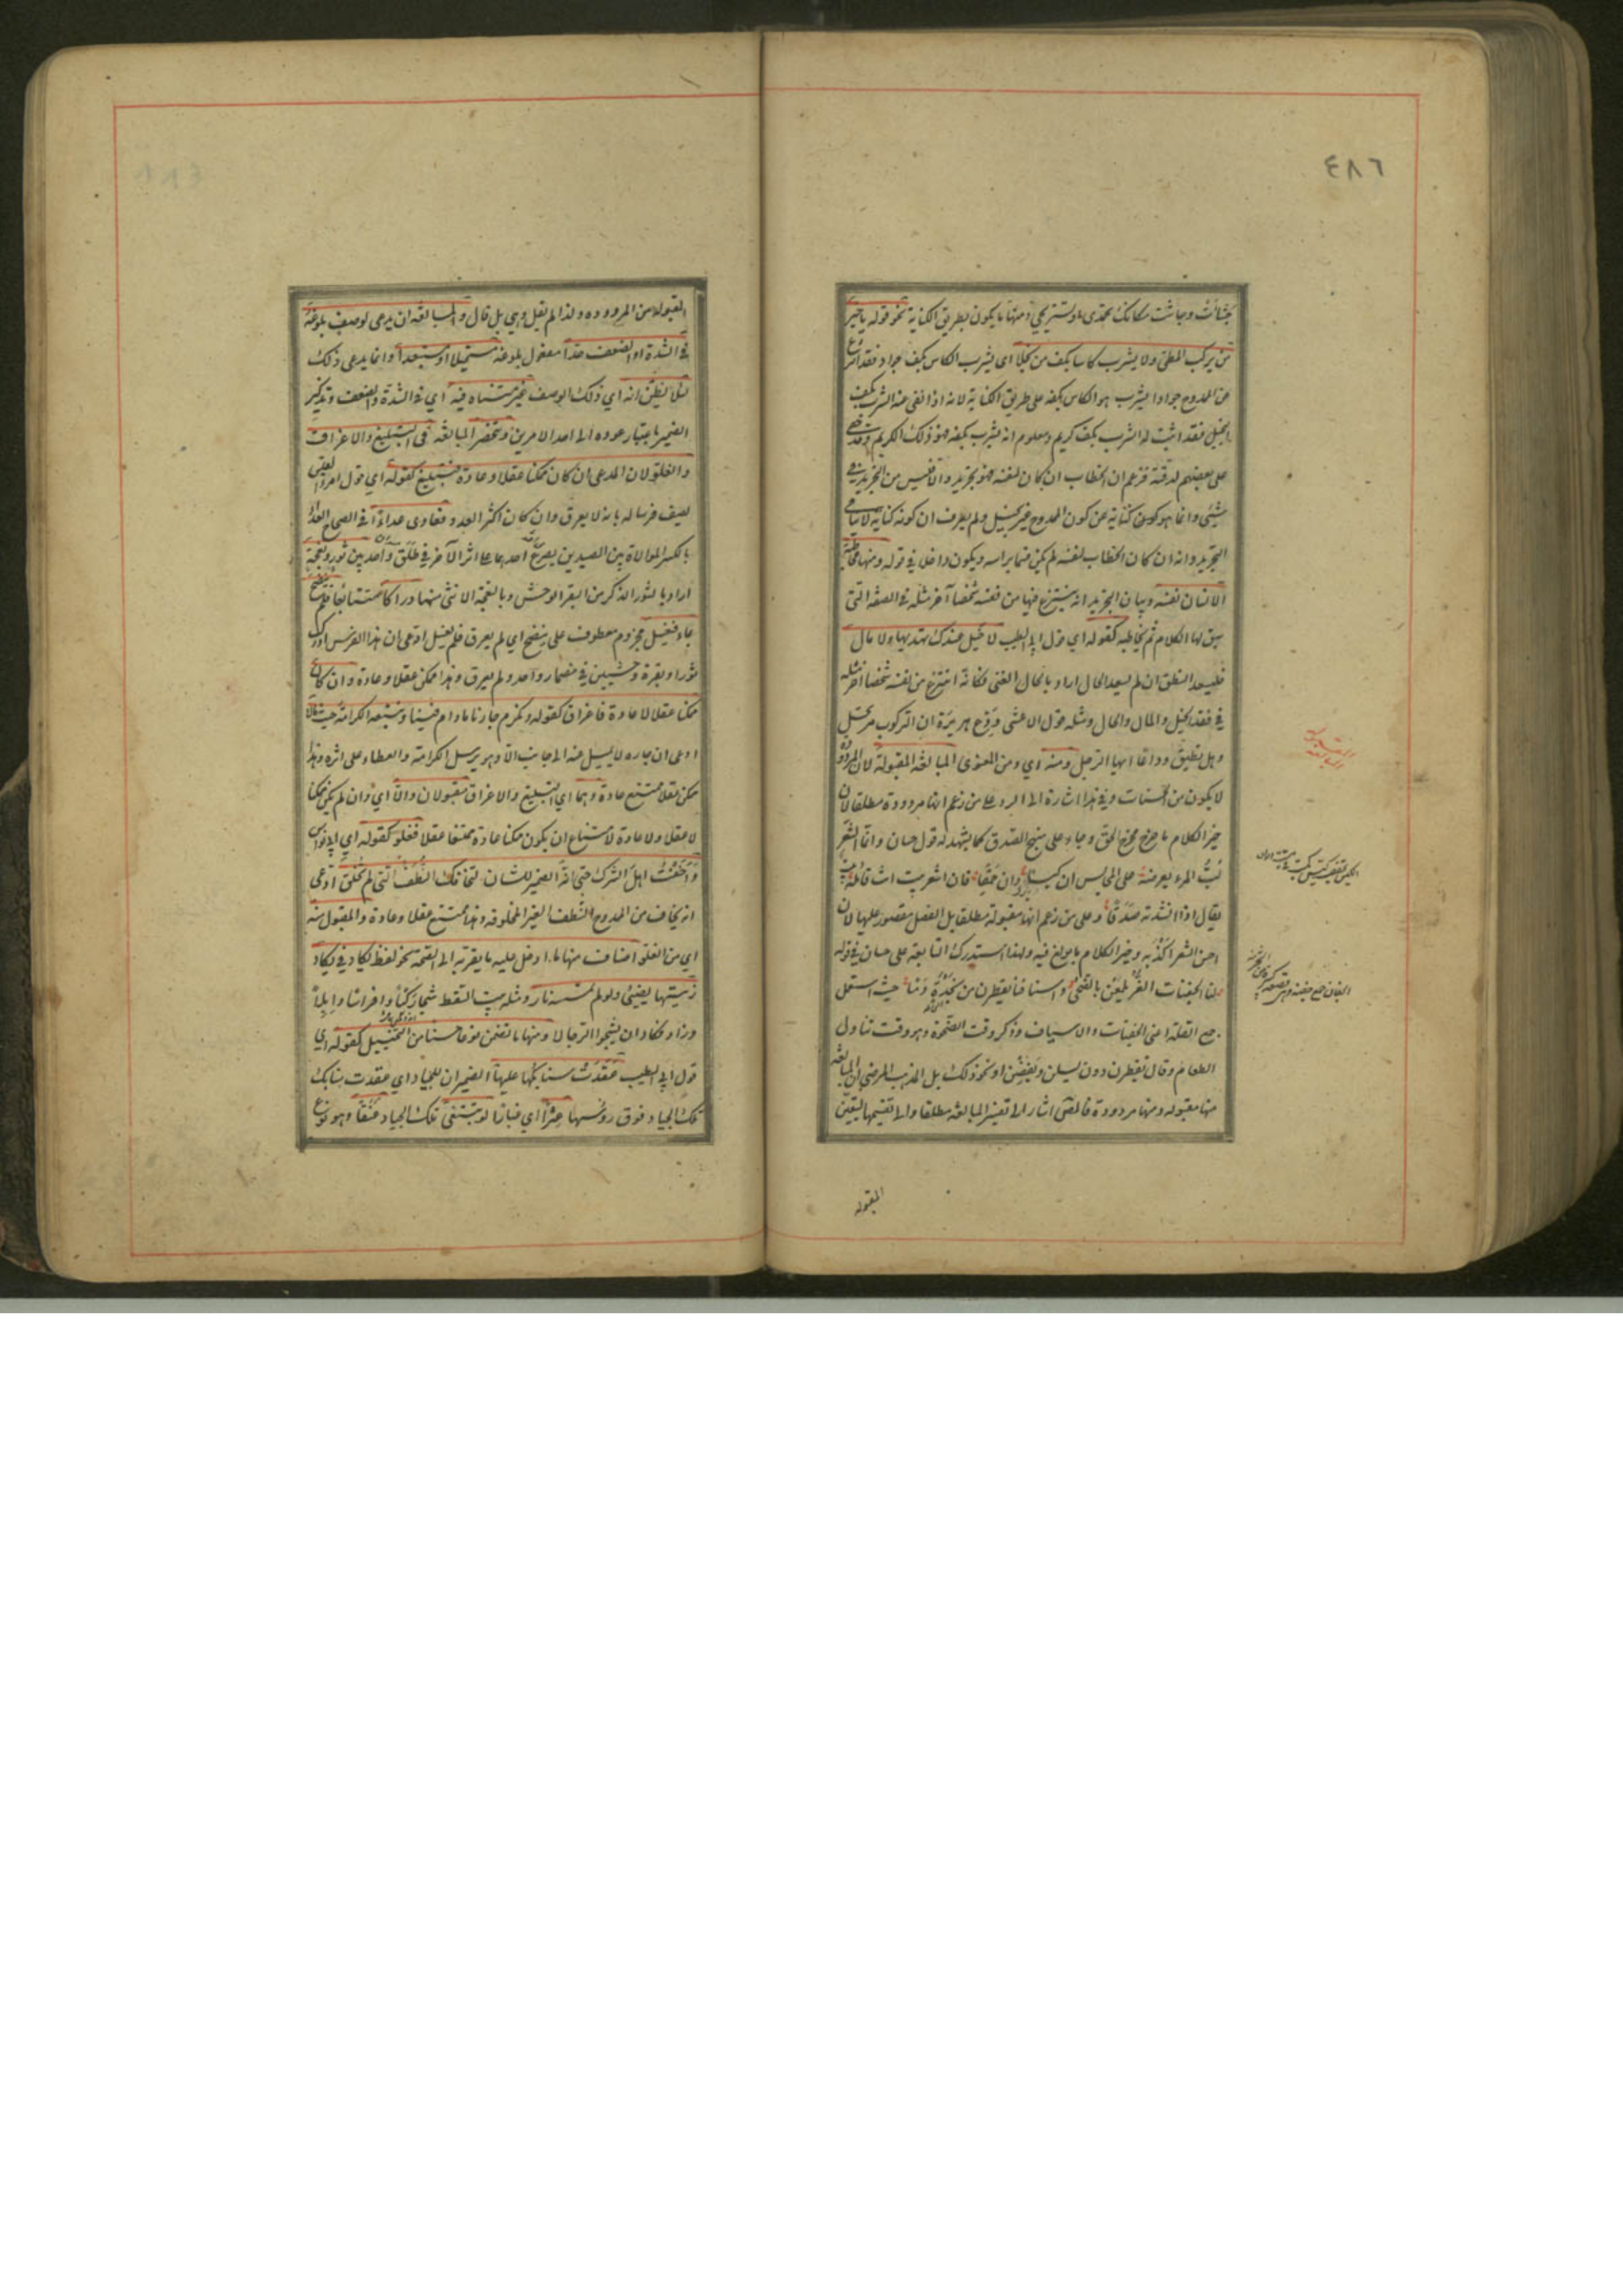 ٤٨٦
جشأت وجاشت مكانك تحمدى او تستريحى ومنها ما يكون بطريق الكناية نحو قوله يا خير
من يركب المطى ولا يشرب كاسا بكف من بخلا اى يشرب الكاس بكف جواد فقد انتزع
من الممدوح جوادا يشرب هو الكاس بكفه على طريق الكناية لانه اذا نفى عنه الشرب بكف
البخيل فقد اثبت له الشرب بكف كريم ومعلوم انه يشرب بكفه فهو ذلك الكريم وقد خفى
على بعضهم لدقته فزعم ان الخطاب ان كان لنفسه فهو تجريد والا فليس من التجريد فى
شيئى وانما هو كناية عن كون الممدوح غير بخيل ولم يعرف ان كونه كناية لا ينافى
التجريد وانه ان كان الخطاب لنفسه لم يكن قسما براسه ويكون داخلا فى قوله ومنها مخاطبة
الانسان نفسه وبيان التجريد انه ينتزع فيها من نفسه شخصا آخر مثله فى الصفة التى
سيق لها الكلام ثم يخاطبه كقوله اى قول ابى الطيب لا خيل عندك تهديها ولا مال
فليسعد النطق ان لم يسعد الحال اراد بالحال الغنى فكانه انتزع من نفسه شخصا آخر مثله
فى فقد الخيل والمال والحال ومثله قول الاعشى ودع هريرة ان الركب مرتحل
وهل تطيق وداعا ايها الرجل ومنه اى ومن المعنوى المبالغة المقبولة لان المردودة
لا يكون من المحسنات وفى هذا اشارة الى الرد على من زعم انها مردودة مطلقا لان
خير الكلام ما خرج مخرج الحق وجاء على منهج الصدق كما يشهد له قول حسان وانما الشعر
لب المرء يعرضه على المجالس ان كيسا وان حمقا فان اشعر بيت انت قائله بيت
يقال اذا انشدته صدقا وعلى من زعم انها مقبولة مطلقا بل الفضل مقصور عليها لان
احسن الشعر اكذبه وخير الكلام ما بولغ فيه ولهذا استدرك النابغة على حسان فى قوله
لنا الجفنات الغر يلمعن بالضحى واسيافنا يقطرن من نجدة دما حيث استعمل
جمع القلة اعنى الجفنات والاسياف وذكر وقت الضحوة وهو وقت تناول
الطعام وقال يقطرن دون يسلن ويفضن او نحو ذلك بل المذهب المرضى ان المبالغة
منها مقبولة ومنها مردودة فالمصنف اشار الى تفسير المبالغة مطلقا والى تقسيمها ليتعين
المقبولة
المقبولة من المردودة ولذا لم يقل وهى بل قال والمبالغة ان يدعى لوصف بلوغه
فى الشدة او الضعف حدا مفعول بلوغه مستحيلا او مستبعدا وانما يدعى ذلك
لئلا يظن انه اى ذلك الوصف غير متناه فيه اى فى الشدة والضعف وتذكير
الضمير باعتبار عوده الى احد الامرين وتنحصر المبالغة فى التبليغ والاغراق
والغلو لان المدعى ان كان ممكنا عقلا وعادة فتبليغ كقوله اى قول امرؤ القيس
يصف فرسا له بانه لا يعرق وان كان اكثر العدو فعادى عداء فى الصحاح العداء
بالكسر الموالاة بين الصيدين يصرع احدهما على اثر الآخر فى طلق واحد بين ثور ونعجة
اراد بالثور الذكر من البقر الوحش وبالنعجة الانثى منها دراكا متتابعا فلم ينضح
بماء فيغسل مجزوم معطوف على ينضح اى لم يعرق فلم يغسل ادعى ان هذا الفرس ادرك
ثورا وبقرة وحشيين فى مضمار واحد ولم يعرق وهذا ممكن عقلا وعادة وان كان
ممكنا عقلا لا عادة فاغراق كقوله ونكرم جارنا ما دام فينا ونتبعه الكرامة حيث مالا
ادعى ان جاره لا يميل عنه الى جانب الا وهو يرسل الكرامة والعطاء على اثره وهذا
ممكن عقلا ممتنع عادة وهما اى التبليغ والاغراق مقبولان والا اى وان لم يكن ممكنا
لا عقلا ولا عادة لامتناع ان يكون ممكنا عادة ممتنعا عقلا فغلو كقوله اى ابى نواس
واخفت اهل الشرك حتى انه الضمير للشان لتخافك النطف التى لم تخلق ادعى
انه يخاف من الممدوح النطف الغير المخلوقة وهذا ممتنع عقلا وعادة والمقبول منه
اى من الغلو اصناف منها ما ادخل عليه ما يقربه الى الصحة نحو لفظ يكاد فى يكاد
زيتها يضيئ ولو لم تمسسه نار ومثله بيت السقط شجا ركبا وافراسا وابلا
وزاد فكاد ان يشجو الرحالا ومنها ما تضمن نوعا حسنا من التخييل كقوله اى
قول ابى الطيب عقدت سنابكها عليها الضميران للجياد اى عقدت سنابك
تلك الجياد فوق رؤسها عثيرا اى غبارا لو تبتغى تلك الجياد عنقا وهو نوع